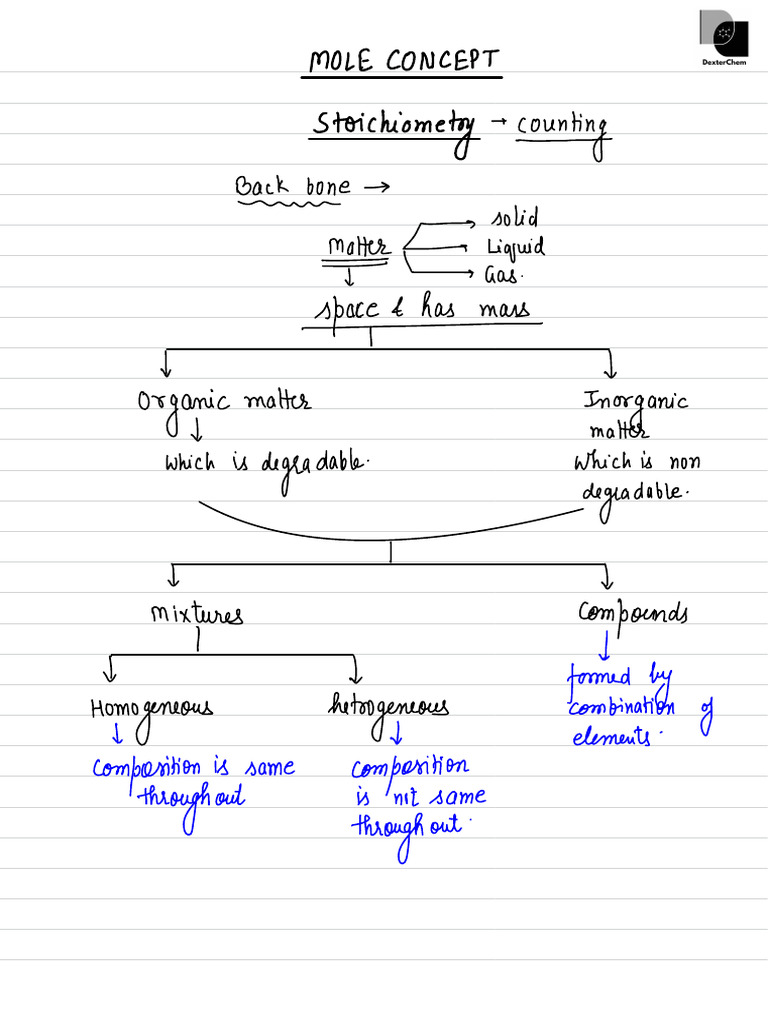 DexterChem
MOLE CONCEPT
Stoichiometry → counting
Back bone →
solid
Matter
Liquid
Gas.
space & has mass
Organic matter
Inorganic
matter
which is degradable.
which is non
degradable.
Mixtures
Compounds
formed by
combination of
elements.
Homogeneous
hetrogeneous
composition is same
throughout
composition
is not same
throughout.